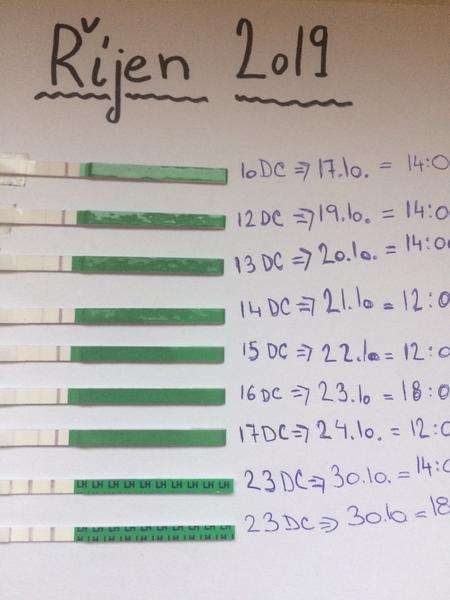 Říjen 2019
10DC => 17.10. = 14:0
12DC => 19.10. = 14:0
13DC => 20.10. = 14:00
14DC => 21.10 = 12:0
15DC => 22.10= 12:0
16DC => 23.10 = 18:0
17DC => 24.10. = 12:0
LH LH LH LH LH LH LH LH LH LH 23DC => 30.10. = 14:0
LH LH LH LH LH LH LH LH LH 23DC => 30.10 = 18